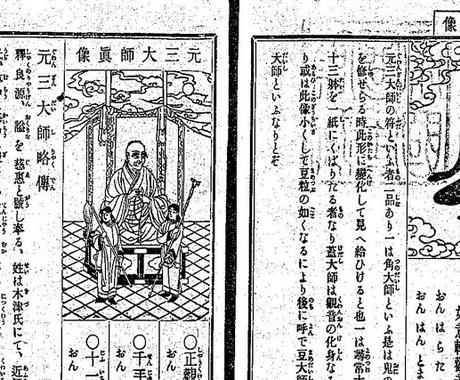 像
おんはらた
おんはんとま
元三大師の符といふ者二品あり一は角大師といふ是は鬼の
を修せらる時此形に變化して見へ給ひけると也一は尋常大
十三躰を一紙にくばりたる者なり蓋大師は觀音の化身な
り或は此像小くして豆粒の如くなるにより後に呼で豆大師
大師といふなりとぞ
元三大師眞像
○正觀
おん
○千手
おん
○十一
おん
元三大師略傳
釋良源、諡を慈惠と號し奉る、姓は木津氏にて、近